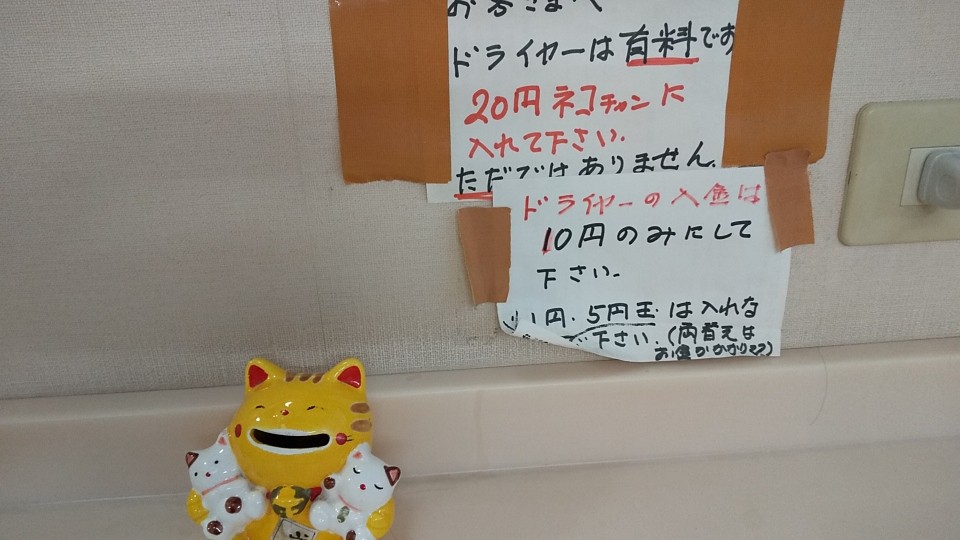 お客さまへ
ドライヤーは有料です
20円ネコチャンに
入れて下さい.
ただではありません.
ドライヤーの入金は
10円のみにして
下さい.
1円.5円玉は入れな
で下さい.(両替えは
お金がかかります)